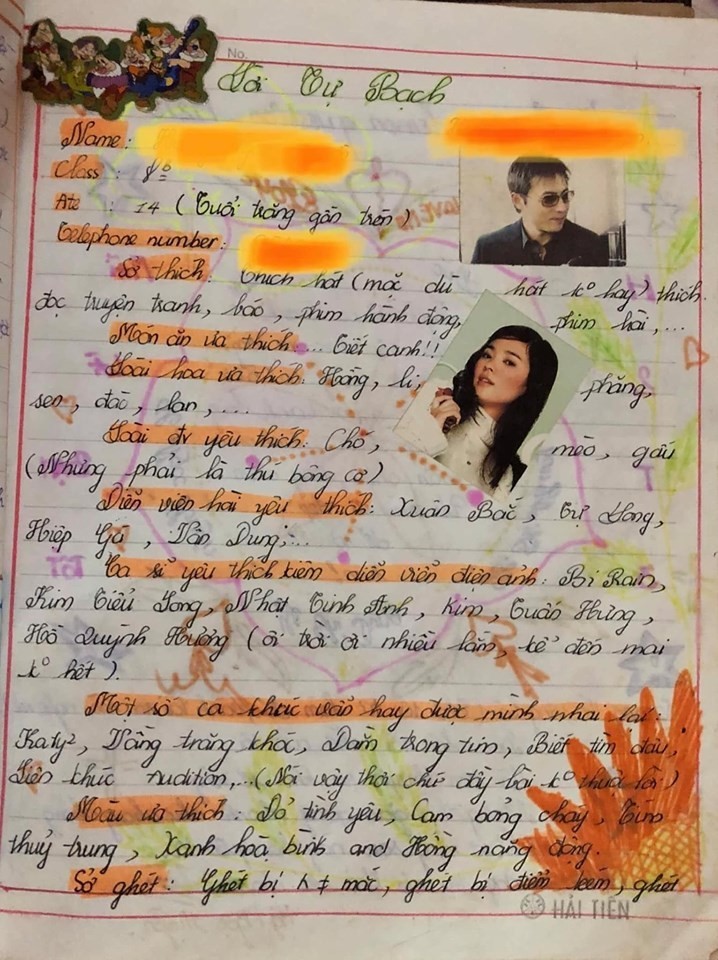 No.
Lời Tự Bạch
Name :
Class : 8
Ate : 14 (Tuổi trăng gần tròn)
Telephone number :
Sở thích : thích hát (mặc dù hát k° hay) thích
đọc truyện tranh, báo, phim hành động, phim hài,...
Món ăn ưa thích : ... Tiết canh!!
Loài hoa ưa thích : Hồng, li, phăng,
sen, đào, lan,...
Loài đv yêu thích : Chó, mèo, gấu
(Nhưng phải là thú bông cơ)
Diễn viên hài yêu thích : Xuân Bắc, Tự Long,
Hiệp Gà, Vân Dung,...
Ca sĩ yêu thích kiêm diễn viên điện ảnh : Bi Rain,
Kim Tiểu Long, Nhật Tinh Anh, Kim, Tuấn Hưng,
Hồ Quỳnh Hương (ôi trời ơi nhiều lắm, kể đến mai
k° hết).
Một số ca khúc vẫn hay được mình nhai lại :
Katy², Vầng trăng khóc, Dằm trong tim, Biết tìm đâu,
Liên khúc Audition,...(Nói vậy thôi chứ đầy bài k° thuộc lời)
Màu ưa thích : Đỏ tình yêu, Cam bỏng cháy, Tím
thuỷ trung, Xanh hoà bình and Hồng năng động.
Sở ghét : Ghét bị mắc, ghét bị điểm kém, ghét
HẢI TIẾN